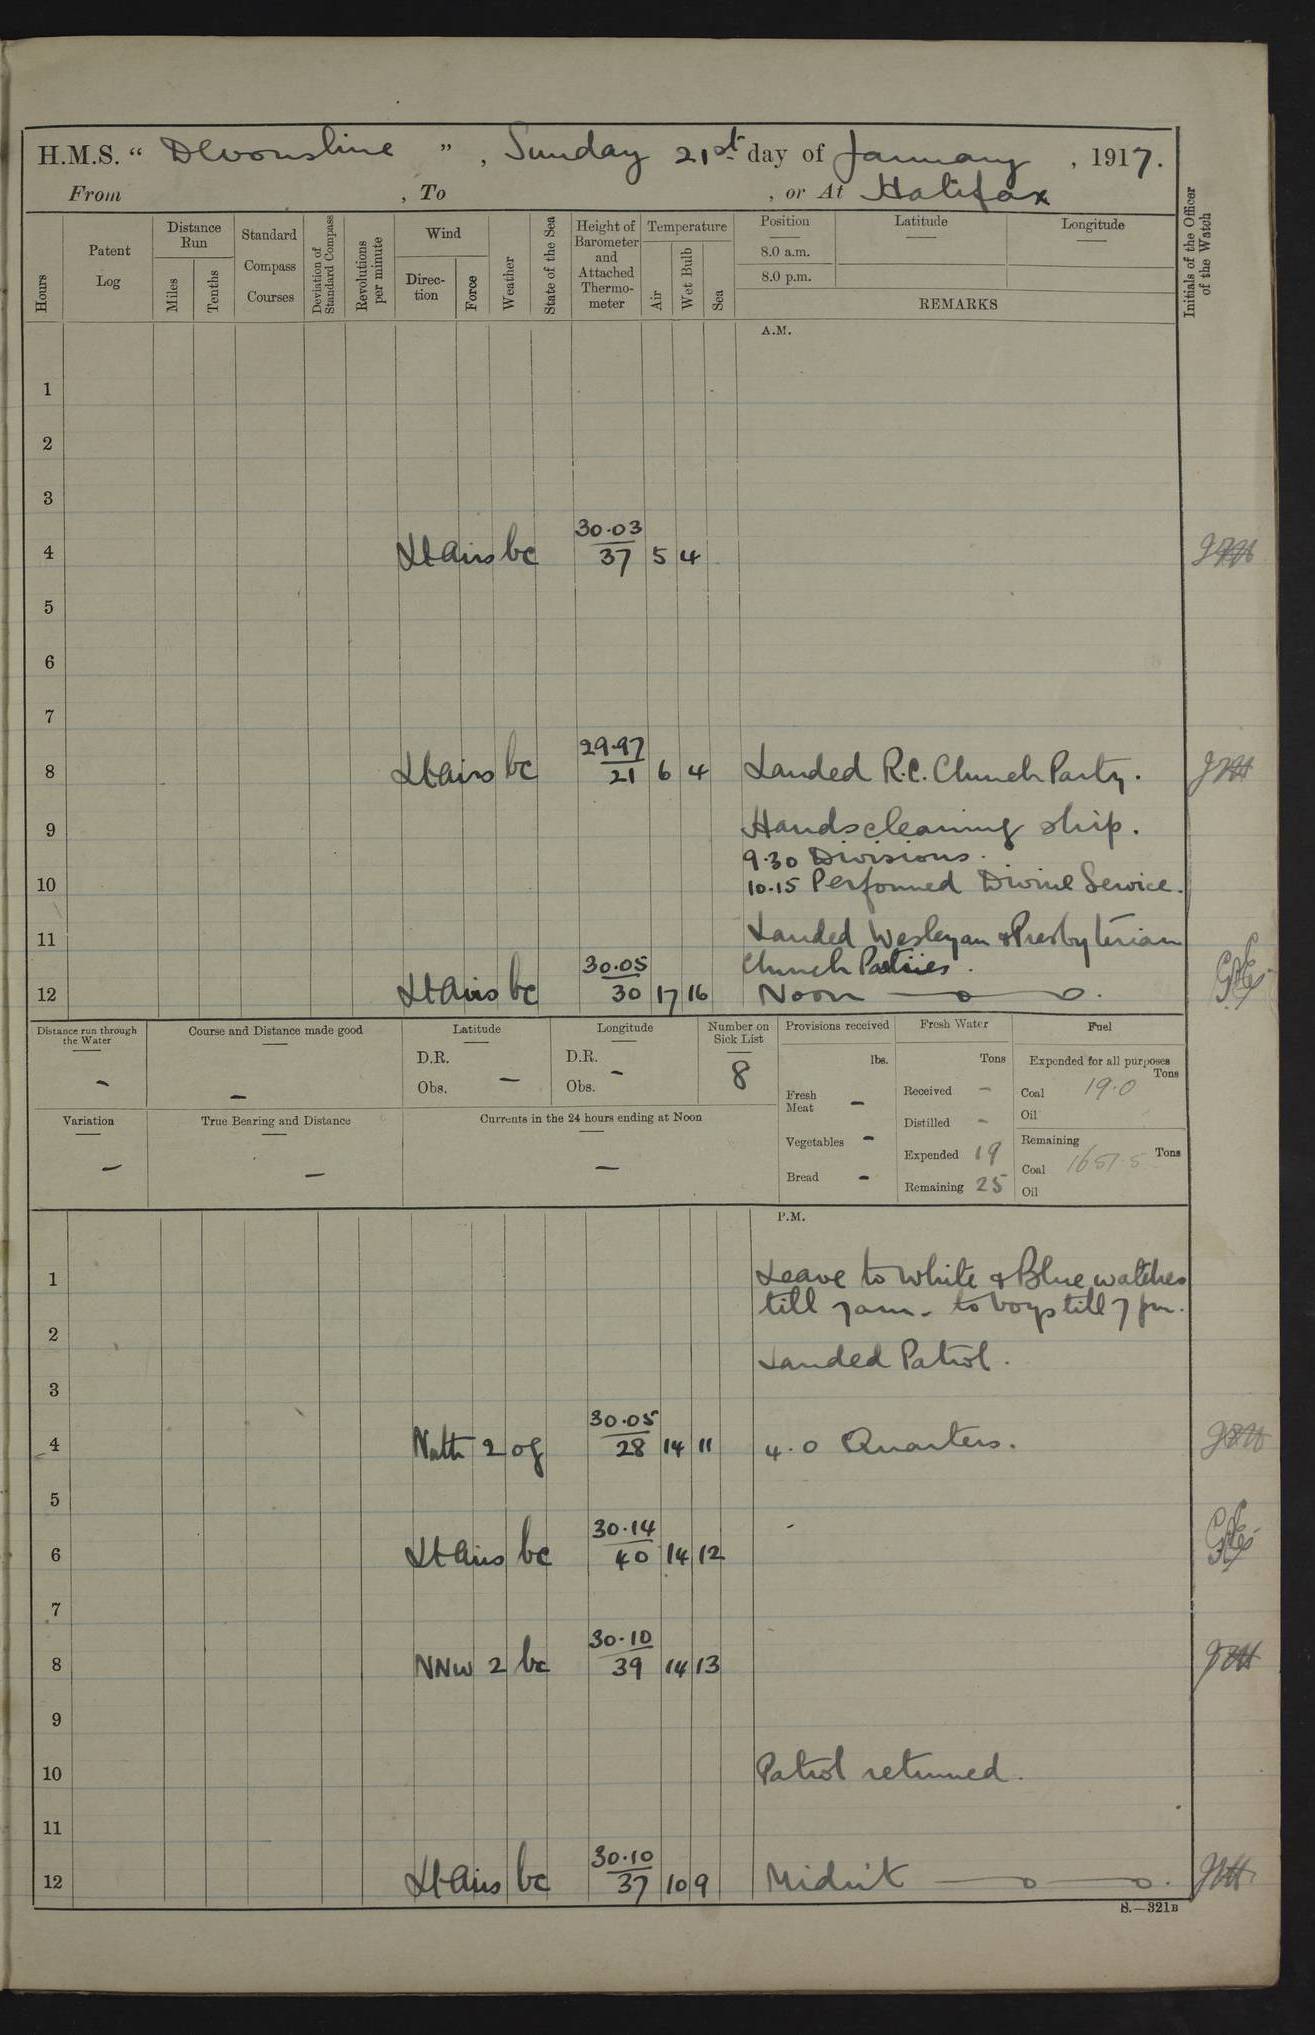 H.M.S. “ Devonshire ” , Sunday 21st day of January , 1917.
From , To , or At Halifax
Hours
Patent Log
Distance Run
Miles
Tenths
Standard Compass Courses
Deviation of Standard Compass
Revolutions per minute
Wind
Direction
Force
Weather
State of the Sea
Height of Barometer and Attached Thermometer
Temperature
Air
Wet Bulb
Sea
Position
8.0 a.m.
8.0 p.m.
Latitude
Longitude
REMARKS
Initials of the Officer of the Watch
A.M.
1
2
3
30.03
4 Lt Airs bc 37 5 4
5
6
7
29.97
8 Lt airs bc 21 6 4 Landed R.C. Church Party.
9 Hands cleaning ship.
9.30 Divisions.
10 10.15 Performed Divine Service.
11 Landed Wesleyan & Presbyterian
30.05 Church Parties.
12 Lt Airs bc 30 17 16 Noon
Distance run through the Water
-
Course and Distance made good
-
Latitude
D.R.
Obs. -
Longitude
D.R. -
Obs.
Number on Sick List
8
Provisions received
lbs.
Fresh Meat -
Vegetables -
Bread -
Fresh Water
Tons
Received -
Distilled -
Expended 19
Remaining 25
Fuel
Expended for all purposes
Tons
Coal 19.0
Oil
Remaining
Tons
Coal 1651.5
Oil
Variation
-
True Bearing and Distance
-
Currents in the 24 hours ending at Noon
-
P.M.
1 Leave to White & Blue watches
till 7am - to boys till 7 pm.
2
Landed Patrol.
3
30.05
4 North 2 og 28 14 11 4.0 Quarters.
5
30.14
6 Lt Airs bc 40 14 12
7
30.10
8 NNW 2 bc 39 14 13
9
10 Patrol returned.
11
30.10
12 Lt Airs bc 37 10 9 Midnt
S.—321B